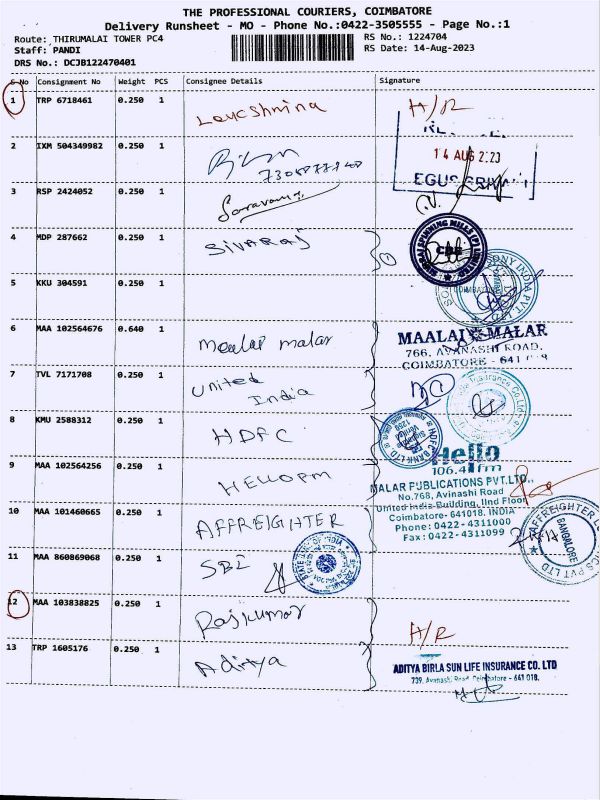 THE PROFESSIONAL COURIERS, COIMBATORE
Delivery Runsheet - MO - Phone No.:0422-3505555 - Page No.:1
Route: THIRUMALAI TOWER PC4
RS No.: 1224704
Staff: PANDI
RS Date: 14-Aug-2023
DRS No.: DCJB122470401
S No Consignment No Weight PCS Consignee Details Signature
1 TRP 6718461 0.250 1 H/R
2 IXM 504349982 0.250 1
14 AUG 2023
3 RSP 2424052 0.250 1
4 MDP 287662 0.250 1 SIVARAJ
5 KKU 304591 0.250 1
6 MAA 102564676 0.640 1 Maalai malar
MAALAI MALAR
766, AVANASHI ROAD,
COIMBATORE - 641
7 TVL 7171708 0.250 1 United
India
8 KMU 2588312 0.250 1 HDFC
HDFC BANK LTD
Hello
106.4 fm
9 MAA 102564256 0.250 1 HELLOFM
MALAR PUBLICATIONS PVT.LTD.,
No.768, Avinashi Road
United India Building, IInd Floor
Coimbatore- 641018. INDIA
Phone: 0422- 4311000
Fax: 0422- 4311099
10 MAA 101460665 0.250 1 AFFREIGHTER
BANGALORE
11 MAA 860869068 0.250 1 SBI
STATE BANK OF INDIA
12 MAA 103838825 0.250 1 Rajkumar H/R
13 TRP 1605176 0.250 1 Aditya
ADITYA BIRLA SUN LIFE INSURANCE CO. LTD
739, Avanashi Road Coimbatore - 641 018.